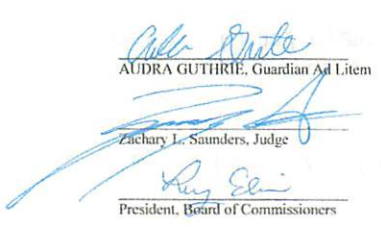 AUDRA GUTHRIE, Guardian Ad Litem
Zachary L. Saunders, Judge
President, Board of Commissioners